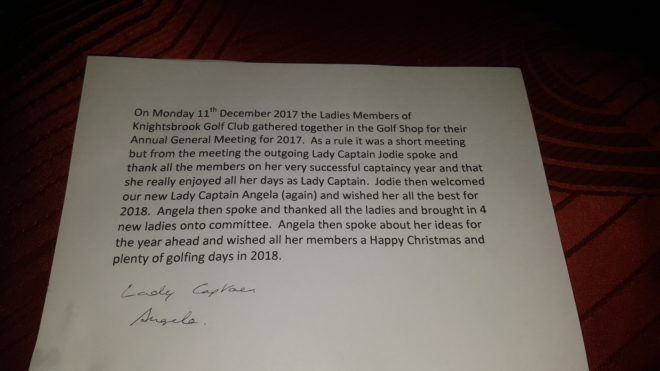 On Monday 11th December 2017 the Ladies Members of
Knightsbrook Golf Club gathered together in the Golf Shop for their
Annual General Meeting for 2017. As a rule it was a short meeting
but from the meeting the outgoing Lady Captain Jodie spoke and
thank all the members on her very successful captaincy year and that
she really enjoyed all her days as Lady Captain. Jodie then welcomed
our new Lady Captain Angela (again) and wished her all the best for
2018. Angela then spoke and thanked all the ladies and brought in 4
new ladies onto committee. Angela then spoke about her ideas for
the year ahead and wished all her members a Happy Christmas and
plenty of golfing days in 2018.
Lady Captain
Angela.